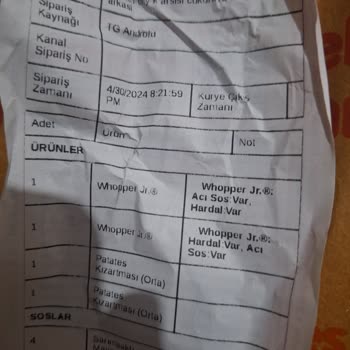 Sipariş
Kaynağı
TG Android
Kanal
Sipariş No
Sipariş
Zamanı
4/30/2024 8:21:59
PM
Kurye Çıkış
Zamanı
Adet
Ürün
Not
ÜRÜNLER
1
Whopper Jr.®
Whopper Jr.®:
Acı Sos Var,
Hardal Var
1
Whopper Jr.®
Whopper Jr.®:
Hardal Var, Acı
Sos Var
1
Patates
Kızartması (Orta)
1
Patates
Kızartması (Orta)
SOSLAR
4